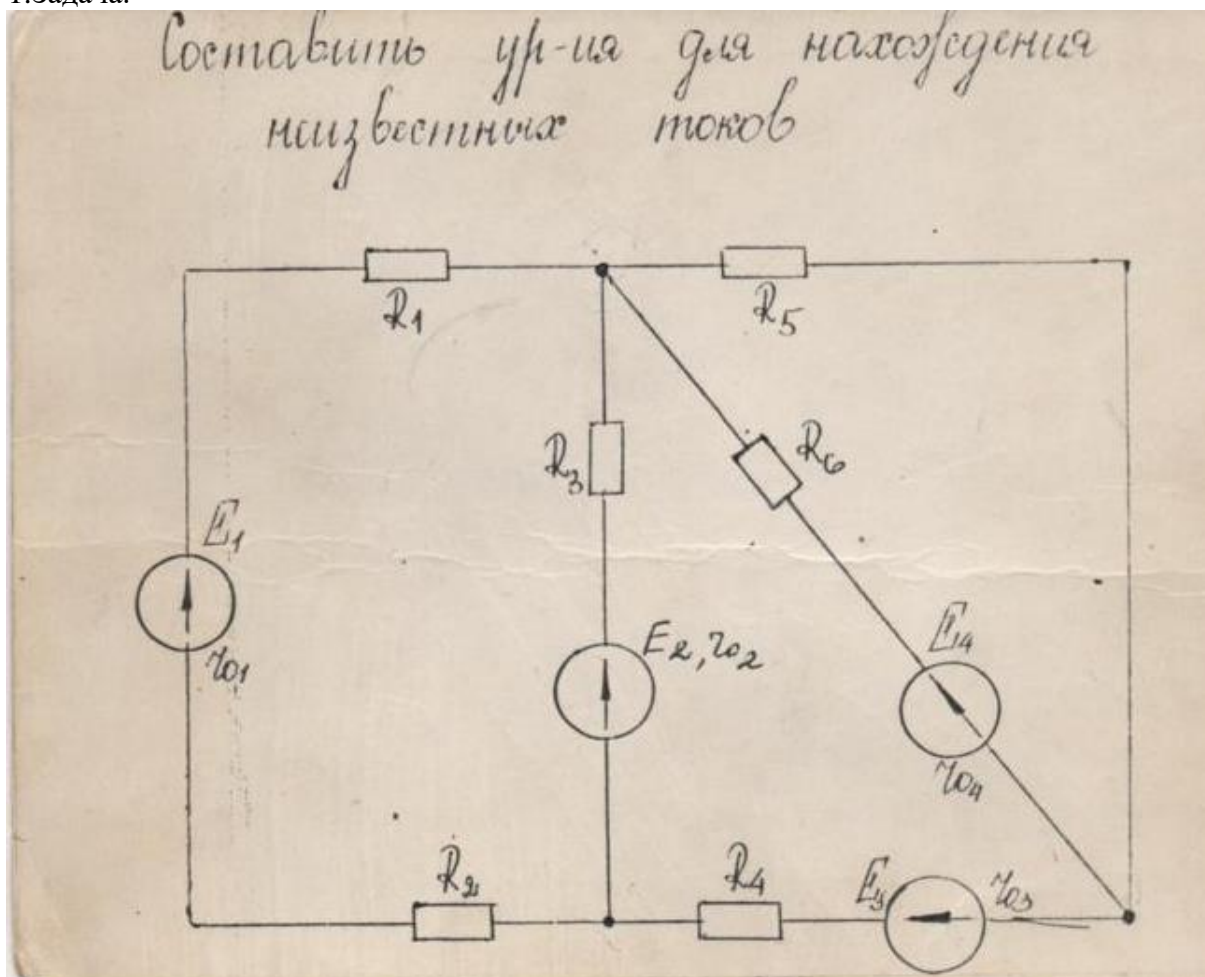 1.Задача.
Составить ур-ия для нахождения
неизвестных токов
R1
R5
R3
R6
E1
r01
E2, r02
E4
r04
R2
R4
E3
r03